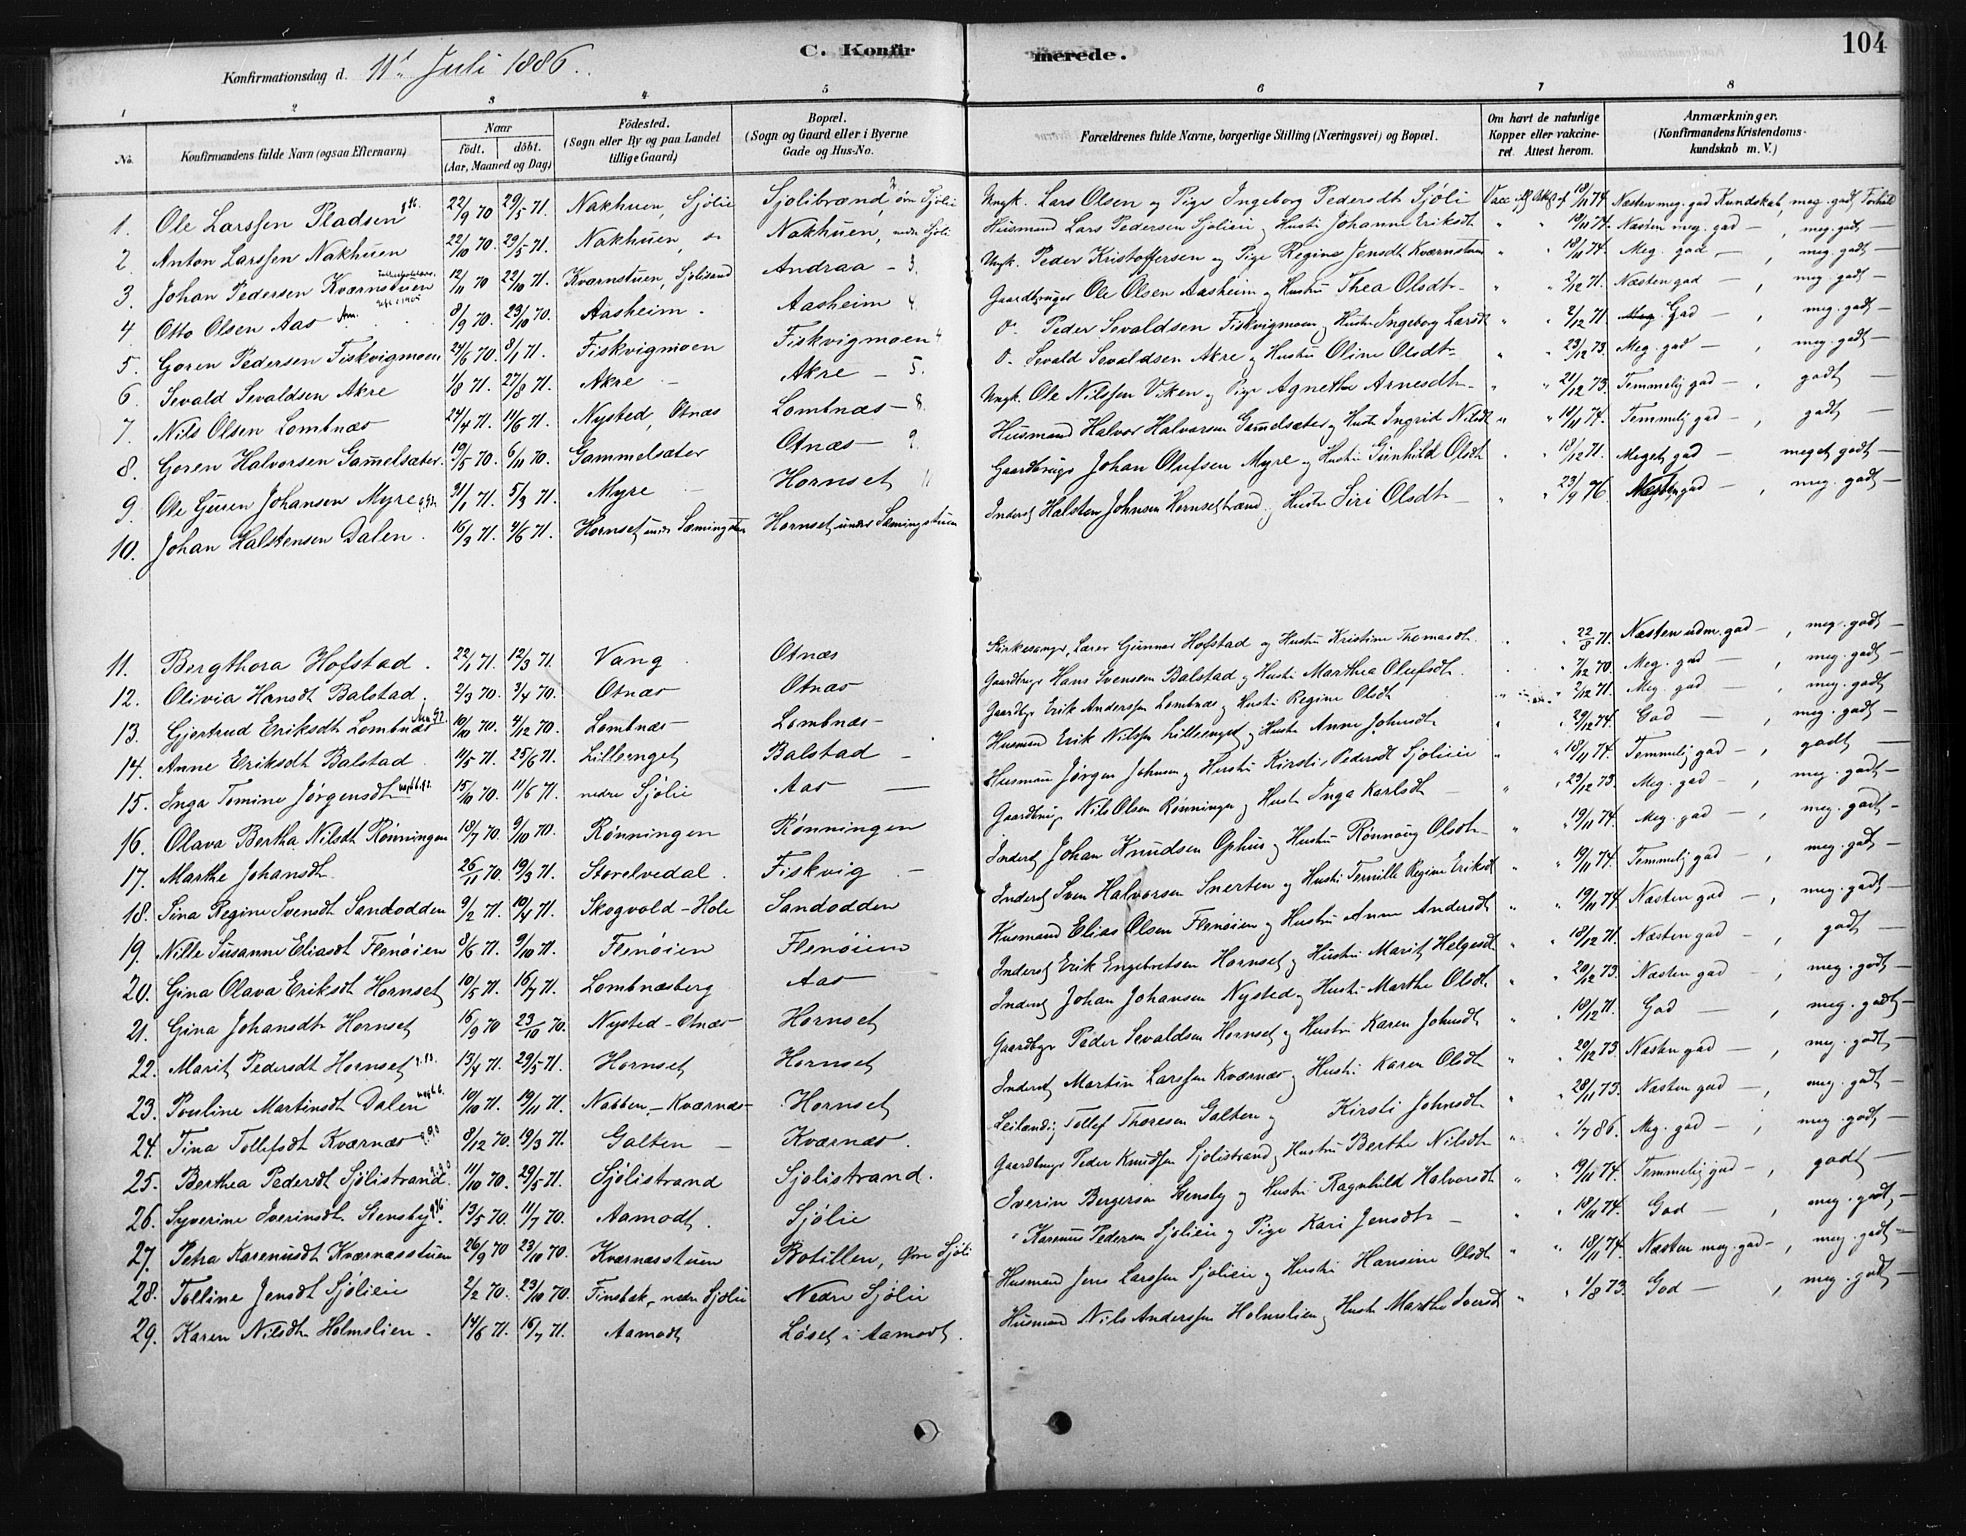 Konfirmationsdag d. 11' Juli 1886. C. Konfirmerede. 104
1 2 3 4 5 6 7 8
No. Konfirmandens fulde Navn (ogsaa Efternavn) Naar født. døbt. (Aar, Maaned og Dag) Fødested. (Sogn eller By og paa Landet tillige Gaard) Bopæl. (Sogn og Gaard eller i Byerne Gade og Hus-No. Forældrenes fulde Navne, borgerlige Stilling (Næringsvei) og Bopæl. Om havt de naturlige Kopper eller vakcineret. Attest herom. Anmærkninger. (Konfirmandens Kristendomskundskab m. V.)
1. Ole Larssen Pladsen 22/9 70 29/5 71. Nakhuen, Sjölie Sjolibrænd, övr Sjölie Ungk. Lars Olsen og Pige Ingeborg Pedersdt Sjöli Vacc. 18/11 74 Næsten meg. god Kundskab, meg. godt Forhold
2. Anton Larssen Nakhuen 22/10 70. 29/5 71. Nakhuen, Nakhuen, nedre Sjöli Husmand Lars Pedersen Sjölien og Hustru Johanne Eriksdt " " 18/11 74. Næsten meg. god — , meg. godt —
3. Johan Pedersen Kværnstuen 12/11 70 22/10 71. Kværnstuen, Sjölisand Andraa — 3. Ungk. Peder Kristoffersen og Pige Regine Jensdt Kværnstuen " " 18/11 74. Meg. god — , meg. godt —
4 Otto Olsen Aas 8/9 70. 23/10 70. Aasheim. Aasheim 4 Gaardbruger Ole Olsen Aasheim og Hustru Thea Olsdt — " " 2/12 71. Næsten god — , meg. godt —
5. Goren Pedersen Fiskvigmoen 24/6 70. 8/1 71. Fiskvigmoen Fiskvigmoen 4 o. Peder Sevaldsen Fiskvigmoen og Hustru Ingeborg Larsdt " " 2/12 71 God — , meg. godt —
6. Sevald Sevaldsen Akre 1/8 71. 27/8 71. Akre — Akre — 5. o. Sevald Sevaldsen Akre og Hustru Oline Olsdt — " " 23/12 73. Meg. god — , meg. godt —
7. Nils Olsen Lombnæs 24/4 71. 11/6 71. Nysted, Otnæs Lombnæs — 8. Ungk. Ole Nilssen Viken og Pige Agnethe Arnesdt — " " 21/12 73. Temmelig god — , godt —
8. Goren Halvorsen Gammelsæter 19/5 70. 6/11 70. Gammelsæter Otnæs — 9. Husmand Halvor Halvorsen Gammelsæter og Hustru Ingrid Nilsdt " " 19/11 74. Temmelig god — , godt —
9. Ole Guren Johansen Myre 31/1 71. 5/3 71. Myre — Hornset 11 Gaardbruger Johan Olufsen Myre og Hustru Gunhild Olsdt " " 18/12 71. Meget god — meget godt —
10. Johan Halstensen Dalen. 16/3 71. 4/6 71. Hornset under Sæmingstuen Hornset under Sæmingstuen Inderst Halsten Johnsen Hornsetstrand og Hustru Siri Olsdt — " " 23/9 76 Næsten god — , meg. godt —
11. Bergthora Hofstad. 22/1 71. 12/3 71. Vang. Otnæs Kirkesanger, Lærer Gunnar Hofstad og Hustru Kristine Thomasdt. " " 22/8 71. Næsten udm. god — , meg. godt —
12. Olivia Hansdt Balstad. 2/3 70. 3/4 70. Otnæs Otnæs Gaardbruger Hans Svensen Balstad og Hustru Marthea Olufsdt. 7/12 70. Meg. god — , meg. godt —
13. Gjertrud Eriksdt Lombnæs 10/10 70. 4/12 70. Lombnæs Lombnæs — Gaardbr Erik Anderssen Lombnæs og Hustru Regine Olsdt " " 2/12 71. Meg. god — , meg. godt
14. Anne Eriksdt Balstad. 11/5 71. 25/6 71. Lilleenget Balstad — Husmand Erik Nilssen Lilleenget og Hustru Anne Johnsdt " " 29/12 74. God — , meg. godt —
15. Inga Tomine Jørgensdt 15/10 70. 11/6 71. nedre Sjölie Aas — Husmand Jørgen Johnsen og Hustru Kirsti Pedersdt Sjölien " " 18/11 74. Temmelig god — , godt —
16. Olava Bertha Nilsdt Rønningen 18/7 70. 9/10 70. Rønningen Rønningen Gaardbruger Nils Olsen Rønningen og Hustru Inga Karlsdt — " " 23/12 73. Meg. god — , meg. godt —
17. Marthe Johansdt. 26/11 70. 19/3 71. Storelvedal. Fiskvig. — Inderst Johan Knudsen Ophus og Hustru Rønnaug Olsdt — " " 19/11 74. Meg. god — , meg. godt
18. Sina Regine Svensdt Sandodden 9/2 71. 10/4 71. Skogvold - Hole Sandodden Inderst Sven Halvorsen Snerten og Hustru Pernille Regine Eriksdt " " 19/11 74. Temmelig god — , meg. godt —
19. Nille Susanne Eliasdt Flenöien 8/6 71. 9/10 71. Flenöien Flenöien Husmand Elias Olsen Flenöien og Hustru Anne Andersdt " " 19/11 74. Næsten god — , meg. godt —
20. Gina Olava Eriksdt Hornset 10/5 71. 16/7 71. Lombnæsberg Aas Inderst Erik Engebretsen Hornset og Hustru Marit Helgesdt " " 18/12 71. Næsten god — , godt —
21. Gina Johansdt Hornset 16/9 70 23/10 70. Nysted - Otnæs Hornset Inderst Johan Johansen Nysted og Hustru Marthe Olsdt " " 20/12 73. Næsten god — , meg. godt —
22. Marit Pedersdt Hornset 13/4 71. 29/5 71. Hornset Hornset Gaardbgr Peder Sevaldsen Hornset og Hustru Karen Johnsdt " " 10/12 71. God — , meg. godt —
23. Pouline Martinsdt Dalen 10/10 71. 19/11 71. Nabben - Kværnæs Hornset Inderst Martin Larssen Kværnæs og Hustru Karen Olsdt " " 20/12 73. Næsten god — , meg. godt —
24. Tina Tollefsdt Kværnæs 8/12 70. 19/3 71. Galten — Kværnæs. Leilændig Tollef Thoresen Galten og Kirsti Johnsdt " " 28/11 73. Næsten god — , meg. godt —
25. Berthea Pedersdt Sjölistrand. 11/10 70. 29/5 71. Sjölistrand Sjölistrand. Gaardbruger Peder Knudsen Sjölistrand og Hustru Berthe Nilsdt " " 1/7 86. Meg. god — , meg. godt —
26. Syverine Iverinsdt Stensby 13/5 70. 11/7 70. Aamodt. Sjölie Iverin Bergersen Stensby og Hustru Ragnhild Halvorsdt " " 19/11 74. Temmelig god — , godt —
27. Petra Karenusdt Kværnæsstuen 26/9 70 23/10 70. Kværnæsstuen Botillen, Øvre Sjöli Karenus Pedersen Sjölien og Pige Kari Jensdt — " " 18/11 74. God — , meg. godt —
28. Tolline Jensdt Sjölien 2/2 70. 23/10 70. Finsbak, nedre Sjölie Nedre Sjölie Husmand Jens Larssen Sjölien og Hustru Hansine Olsdt " " 18/11 74. Næsten meg. god — , meg. godt —
29. Karen Nilsdt Holmslien. 14/6 71. 16/7 71. Aamodt Löset i Aamodt. Husmand Nils Anderssen Holmslien og Hustru Marthe Iversdt " " 1/8 73. God — , meg. godt —